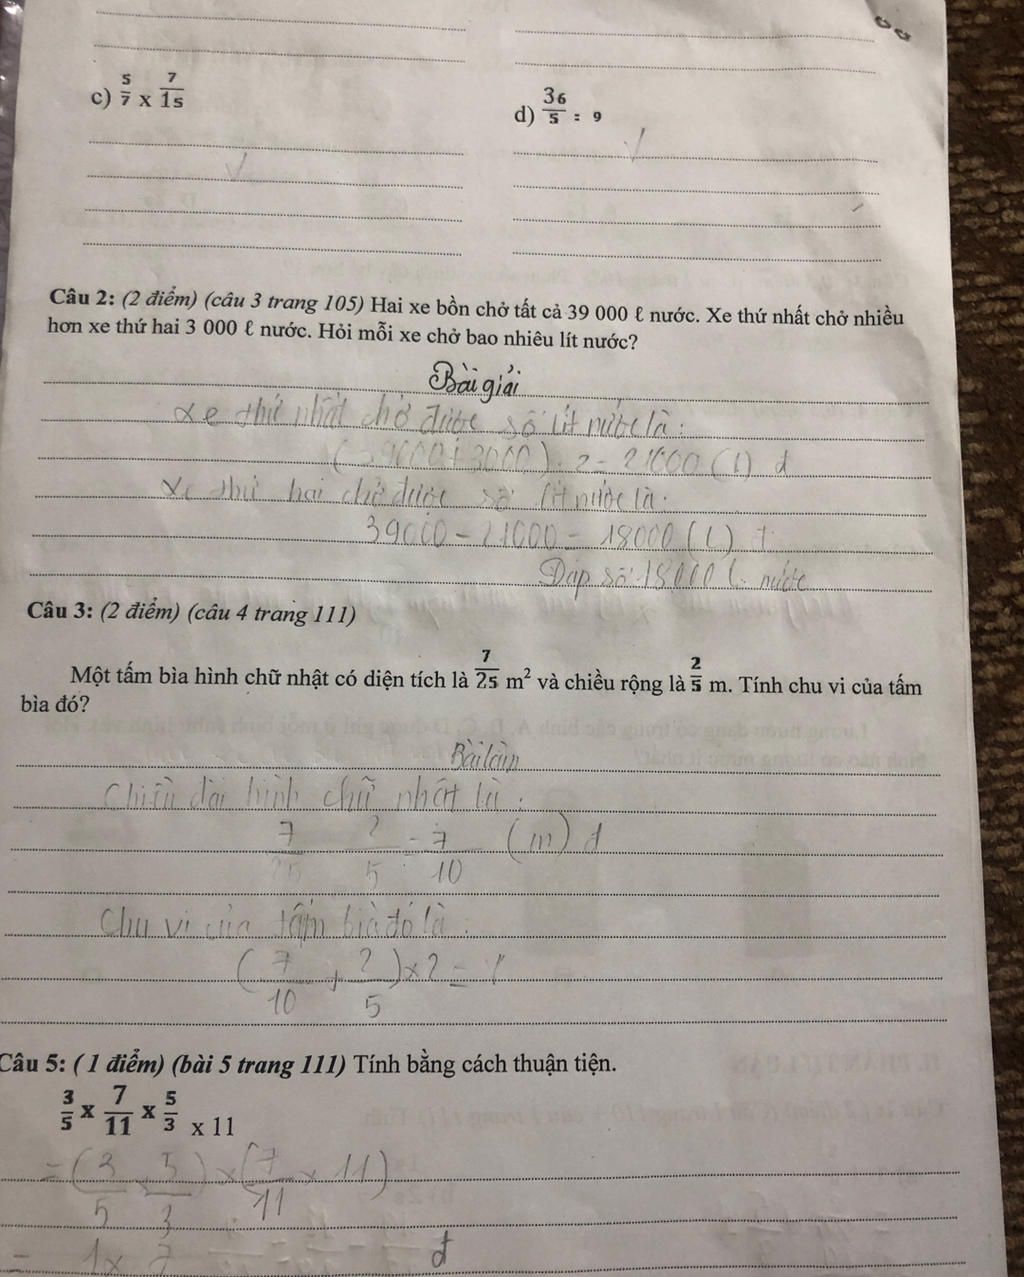 c) 5/7 x 7/15
d) 36/5 : 9
Câu 2: (2 điểm) (câu 3 trang 105) Hai xe bồn chở tất cả 39 000 ℓ nước. Xe thứ nhất chở nhiều
hơn xe thứ hai 3 000 ℓ nước. Hỏi mỗi xe chở bao nhiêu lít nước?
Bài giải
Xe thứ nhất chở được số lít nước là:
(39000 + 3000) : 2 = 21000 (l) đ
Xe thứ hai chở được số lít nước là:
39000 - 21000 = 18000 (l) đ
Đáp số: 18000 l nước
Câu 3: (2 điểm) (câu 4 trang 111)
Một tấm bìa hình chữ nhật có diện tích là 7/25 m² và chiều rộng là 2/5 m. Tính chu vi của tấm
bìa đó?
Bài làm
Chiều dài hình chữ nhật là:
7/25 : 2/5 = 7/10 (m) đ
Chu vi của tấm bìa đó là:
(7/10 + 2/5) x 2 =
Câu 5: ( 1 điểm) (bài 5 trang 111) Tính bằng cách thuận tiện.
3/5 x 7/11 x 5/3 x 11
= (3/5 x 5/3) x (7/11 x 11)
= 1 x 7 đ